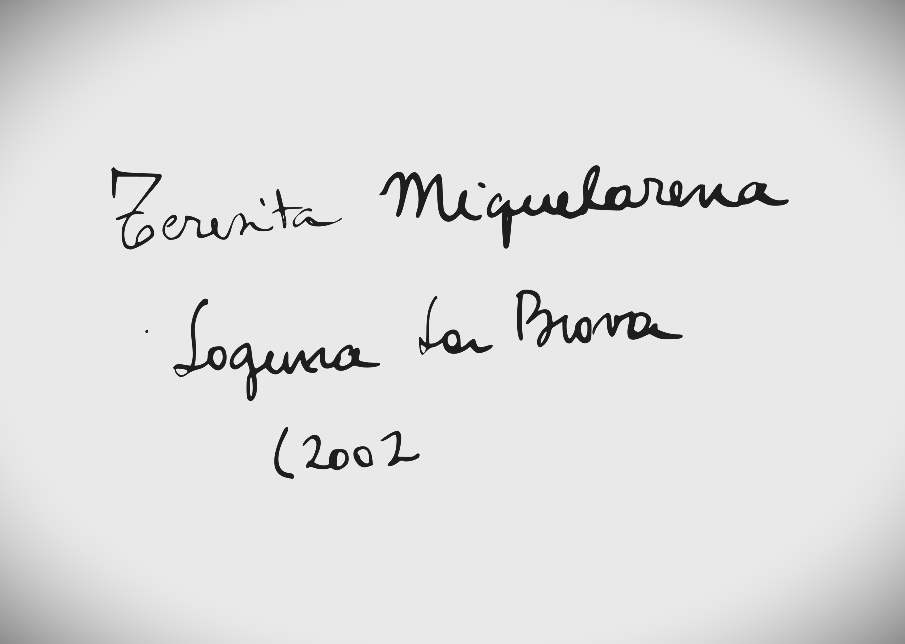 Teresita Miquelarena
Laguna La Brava
(2002